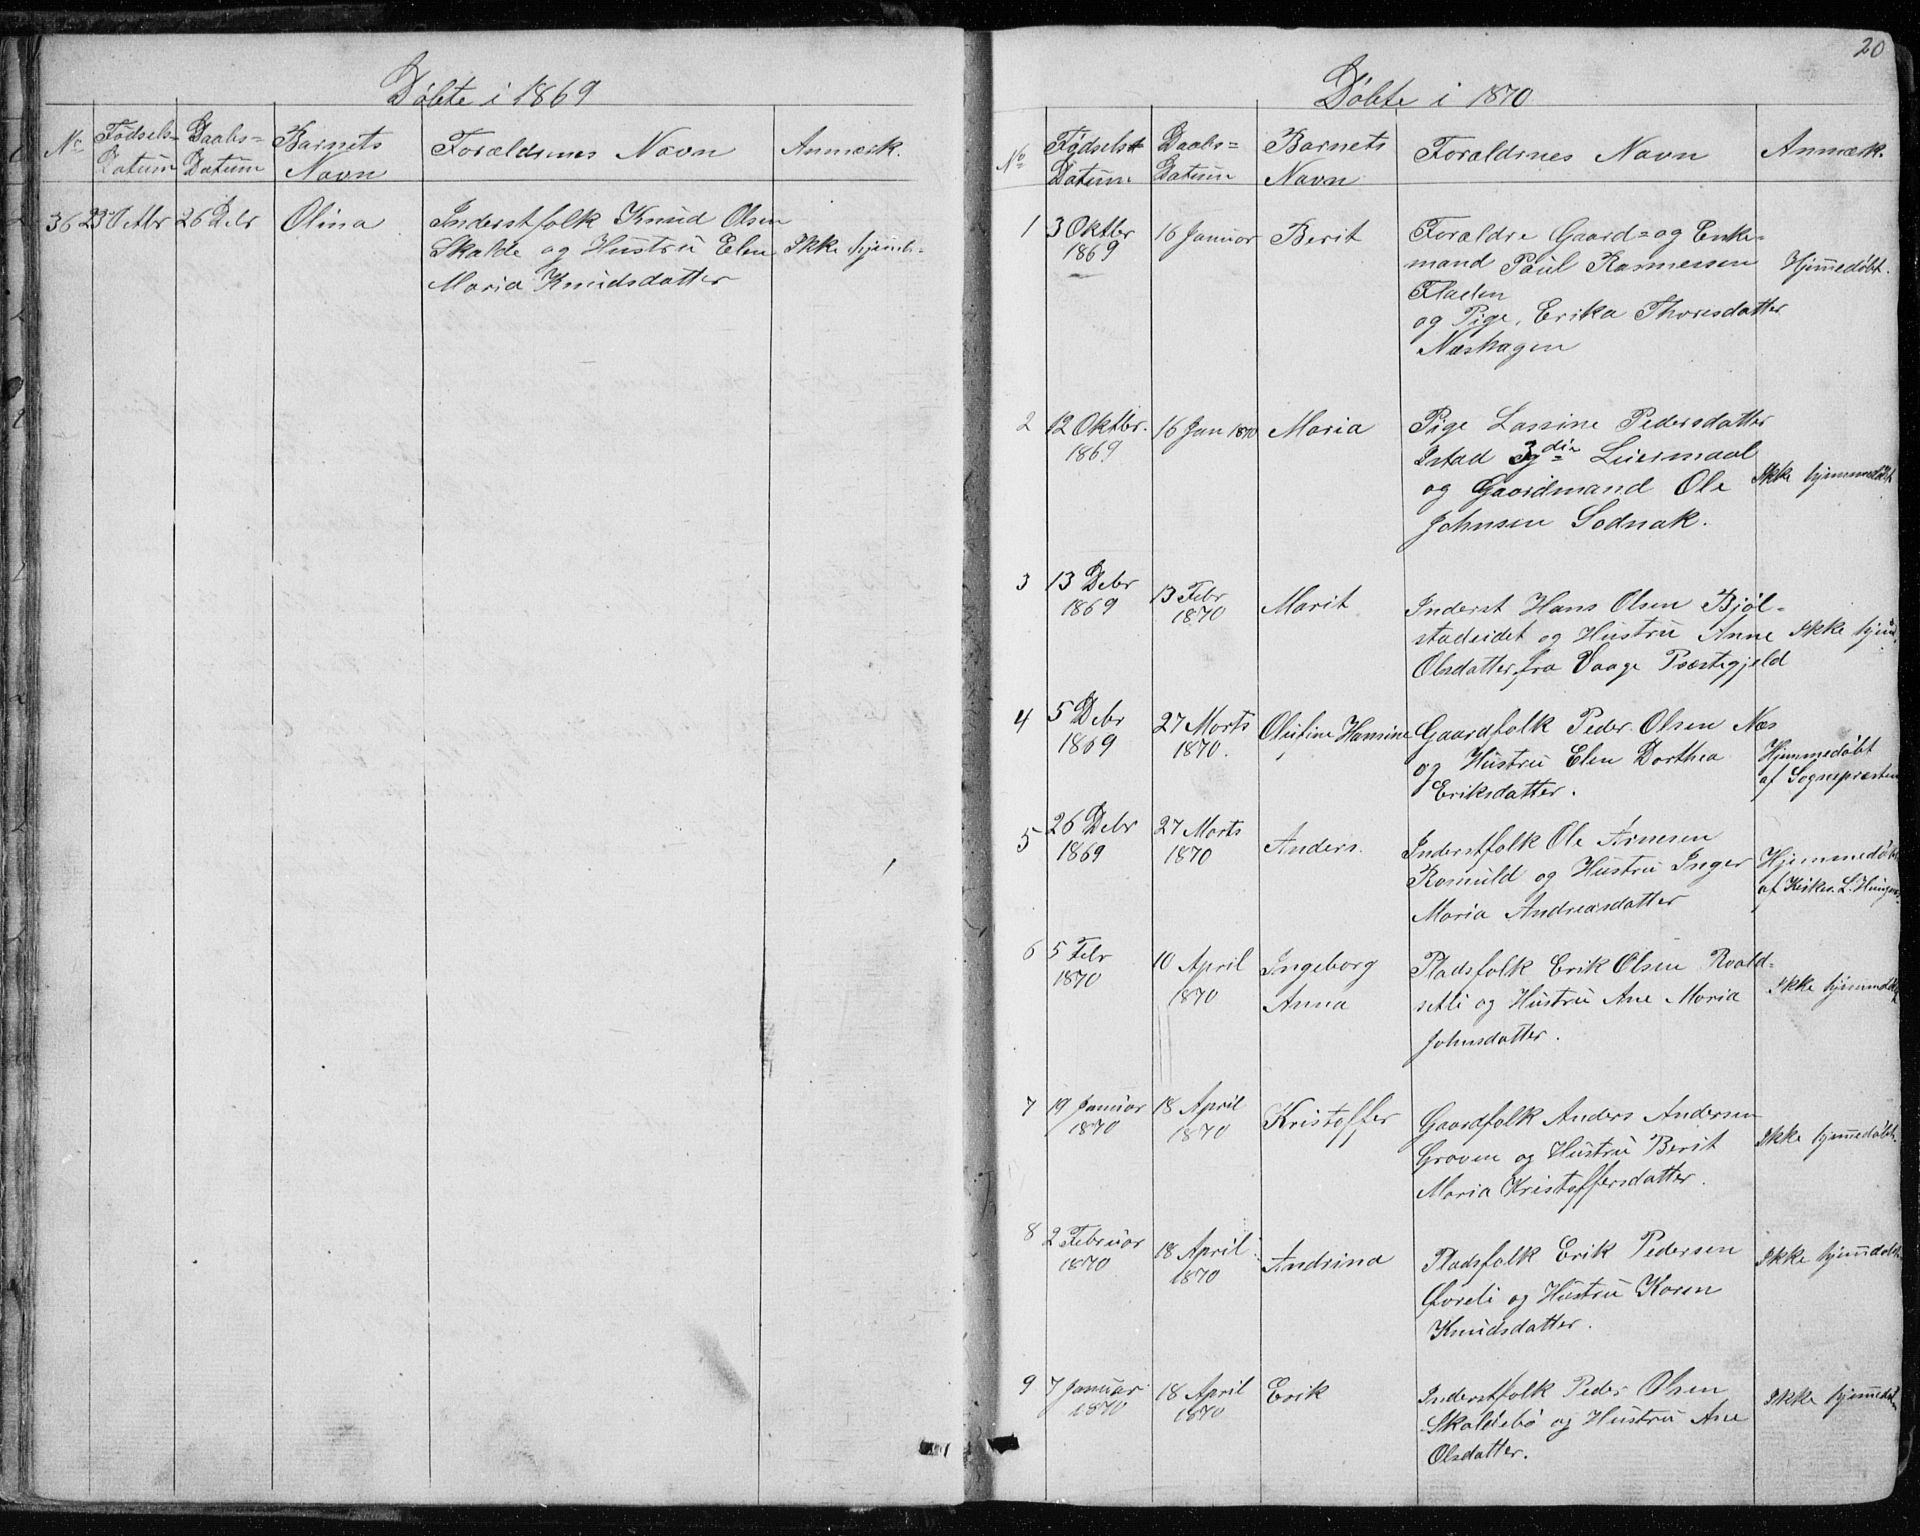 Døbte i 1869
No Fødsels= Daabs= Barnets Forældrenes Navn Anmærk.
Datum Datum Navn
36 23 Octbr 26 Debr Olina Inderstfolk Knud Olsen
Skalde og Hustru Elen Ikke hjemb.
Maria Knudsdatter
20
Døbte i 1870
No Fødsels= Daabs= Barnets Forældrenes Navn Anmærk.
Datum Datum Navn
1 3 Oktbr 16 Januar Berit Forældre Gaard= og Enke=
1869 mand Paul Rasmussen Hjemedøbt.
Fladen
og Pige, Erika Thoresdatter
Næshagen
2 12 Oktbr. 16 Jan 1870 Maria Pige Lassine Pedersdatter
1869 Istad 3die Leiermaal
og Gaardmand Ole Ikke hjemmedøbt
Johnsen Sodnak.
3 13 Debr 13 Febr Marit Inderst Hans Olsen Bjøl=
1869 1870 stadeidet og Hustru Anne Ikke hjem
Olsdatter, fra Vaage Præstegjeld
4 5 Debr 27 Marts Olufine Hansine Gaardfolk Peder Olsen Næs
1869 1870. og Hustru Elen Dorthea Hjemmedøbt
Eriksdatter. af Sognepræsten
5 26 Debr 27 Marts Anders. Inderstfolk Ole Arnesen
1869 1870 Romuld og Hustru Inger Hjemmedøbt
Maria Andreasdatter af Kirkes. L.
6 5 Febr 10 April Ingeborg Pladsfolk Erik Olsen Roald=
1870 1870 Anna setli og Hustru Ane Maria Ikke hjemmedøbt
Johnsdatter.
7 19 Januar 18 April Kristoffer Gaardfolk Anders Andersen
1870 1870 Groven og Hustru Berit Ikke hjemedøbt.
Maria Kristoffersdatter.
8 2 Februar 18 April Andrina Pladsfolk Erik Pedersen Ikke hjemdøbt
1870 1870 Øvreli og Hustru Karen
Knudsdatter.
9 7 Januar 18 April Erik Inderstfolk Peder Olsen Ikke hjemedøbt
1870 1870 Skaldebø og Hustru Ane
Olsdatter.